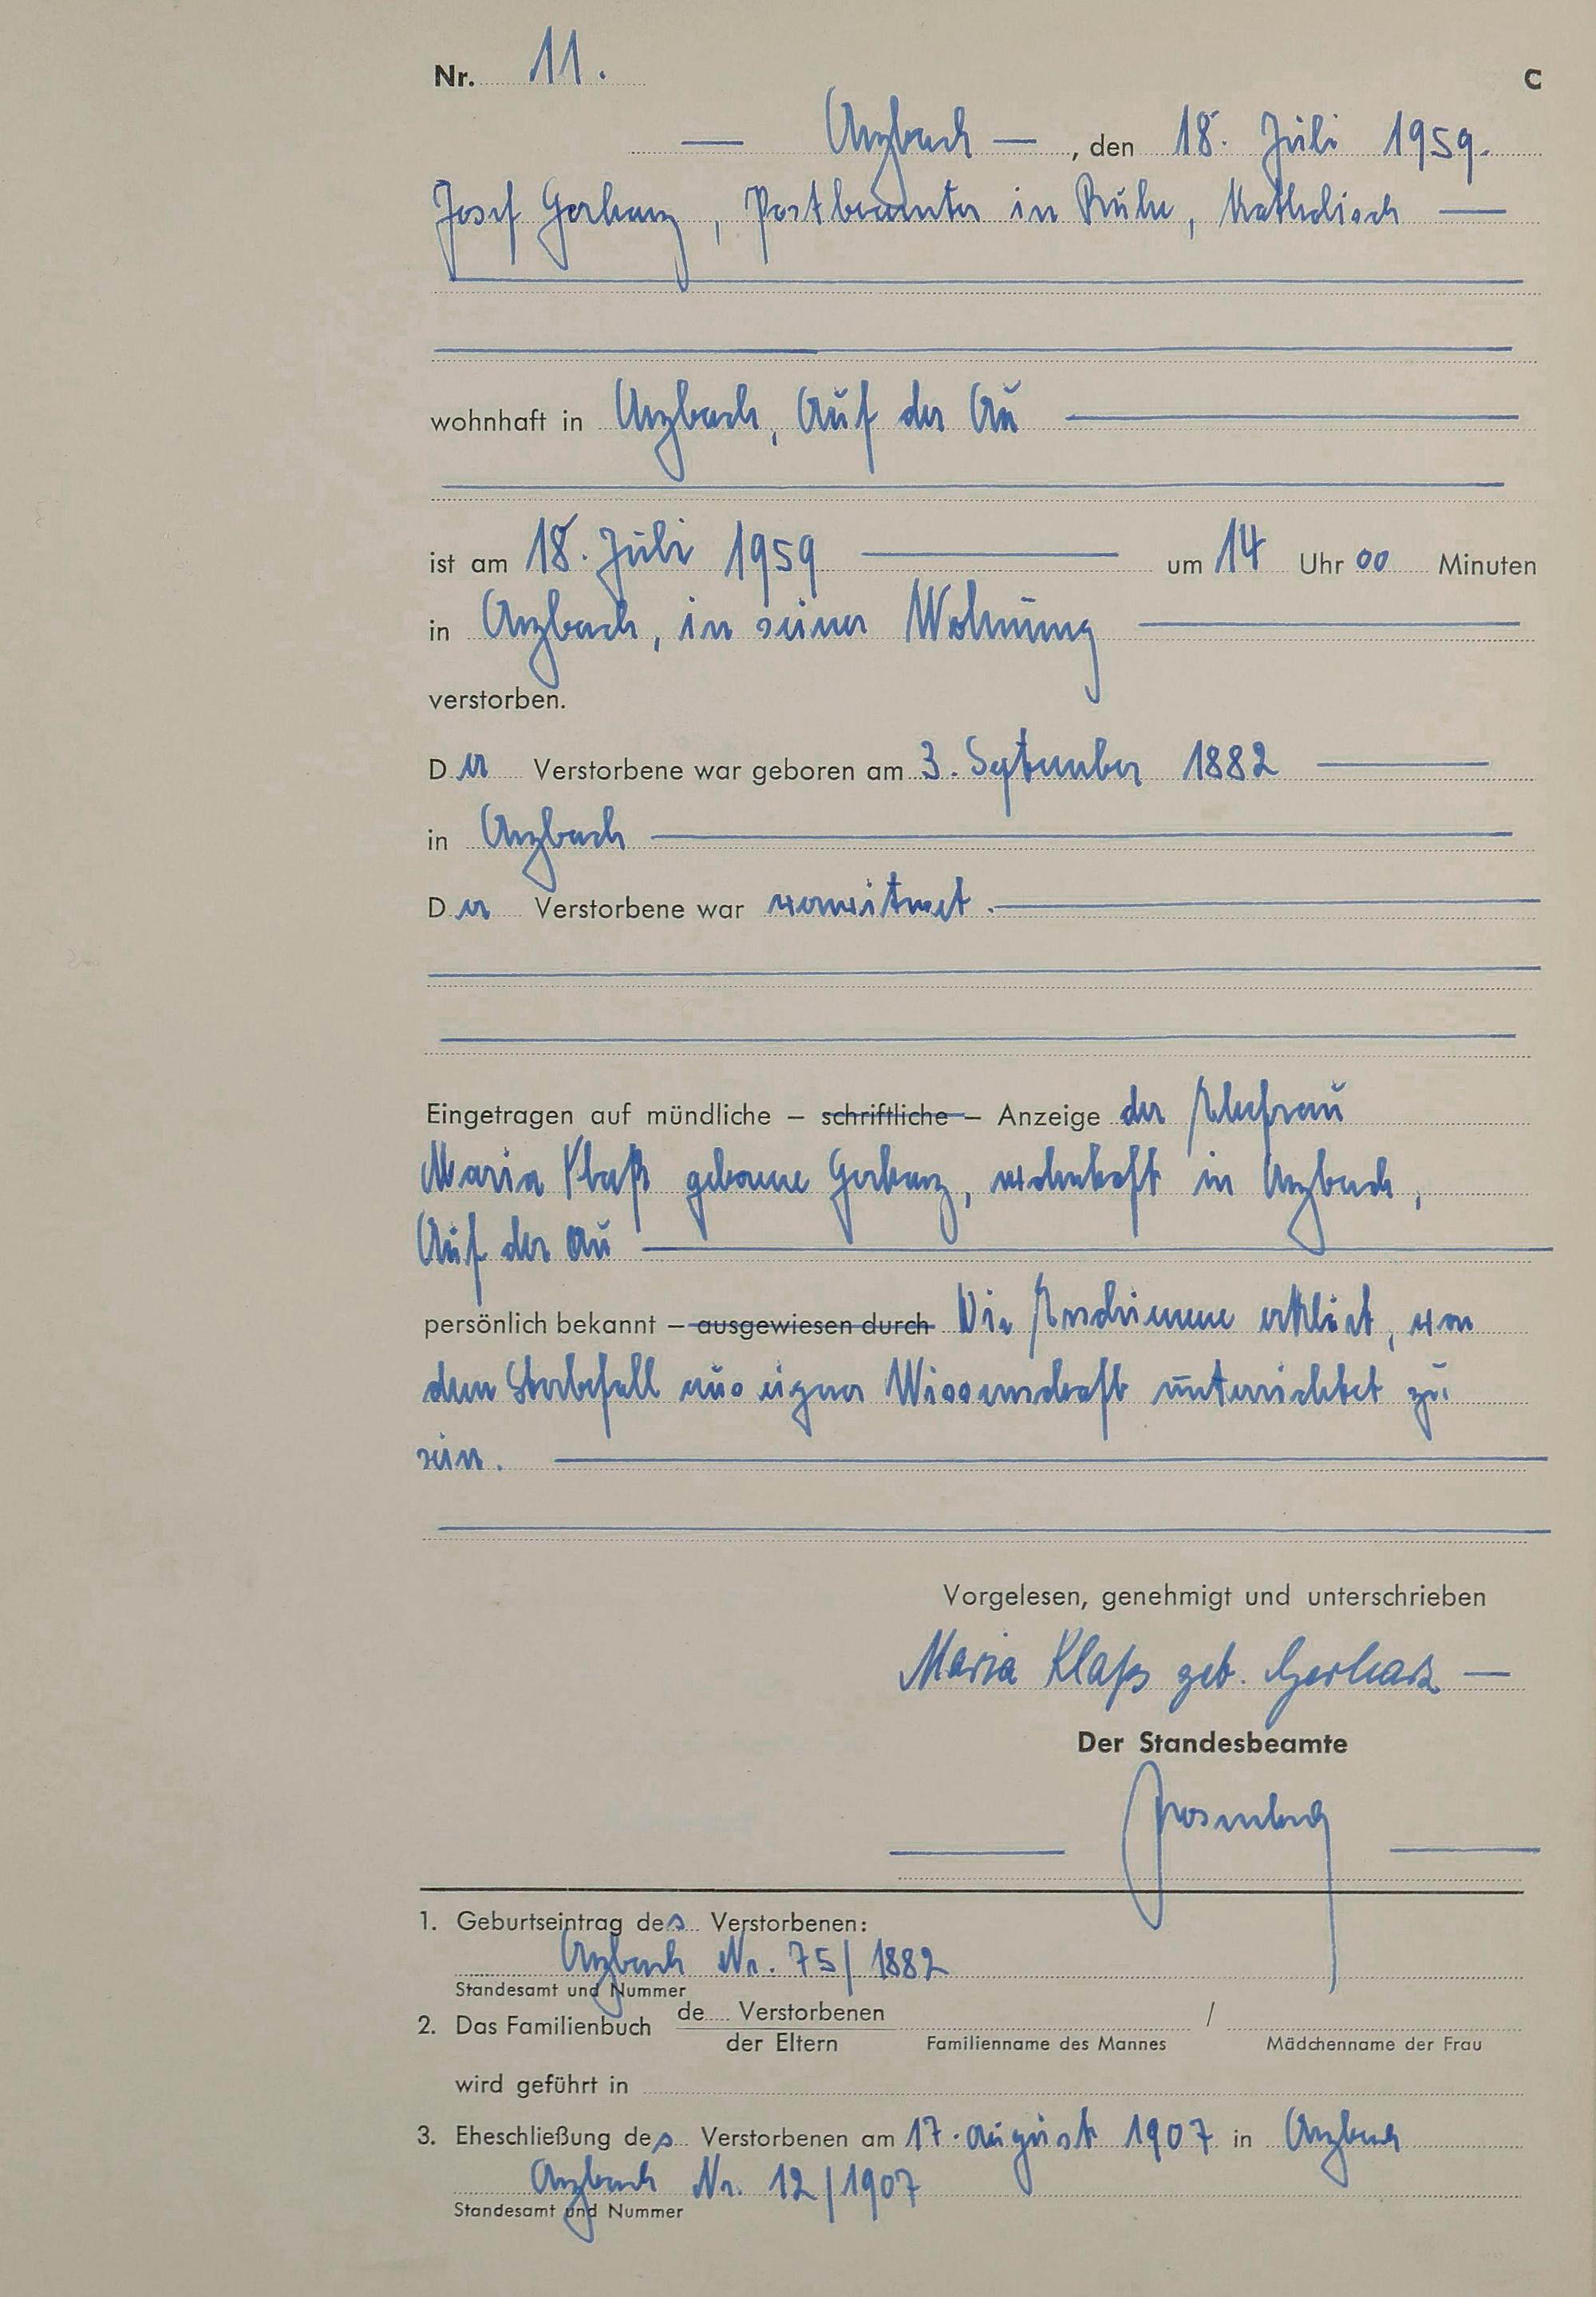 Nr. 11. C
— Arzbach — , den 18. Juli 1959.
Josef Gerharz, Postbeamter in Ruhe, katholisch —
wohnhaft in Arzbach, Auf der Au
ist am 18. Juli 1959 um 14 Uhr 00 Minuten
in Arzbach, in seiner Wohnung
verstorben.
Der Verstorbene war geboren am 3. September 1882
in Arzbach
Der Verstorbene war verwitwet.
Eingetragen auf mündliche – schriftliche – Anzeige der Ehefrau
Maria Klaß geborene Gerharz, wohnhaft in Arzbach,
Auf der Au
persönlich bekannt – ausgewiesen durch Die Erschienene erklärt, von
dem Sterbefall aus eigner Wissenschaft unterrichtet zu
sein.
Vorgelesen, genehmigt und unterschrieben
Maria Klaß geb. Gerharz —
Der Standesbeamte
1. Geburtseintrag des Verstorbenen:
Arzbach Nr. 75/1882
Standesamt und Nummer
2. Das Familienbuch de Verstorbenen /
der Eltern Familienname des Mannes Mädchenname der Frau
wird geführt in
3. Eheschließung des Verstorbenen am 17. August 1907 in Arzbach
Arzbach Nr. 12/1907
Standesamt und Nummer